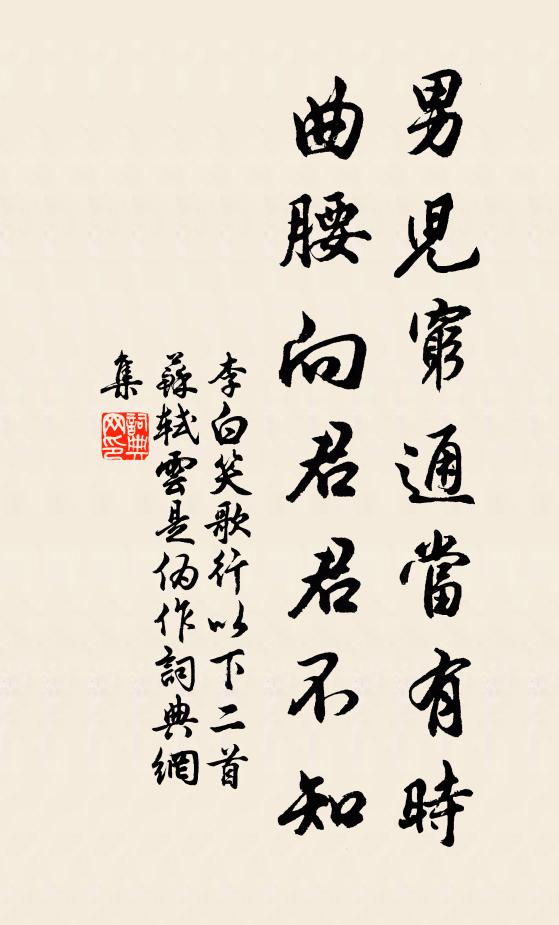 男兒窮通當有時
曲腰向君君不知
李白笑歌行以下二首
蘇軾雲是偽作詞典網
集
詞典網印